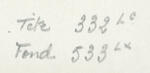 Tête 332 Lc
Fond 533 Lx